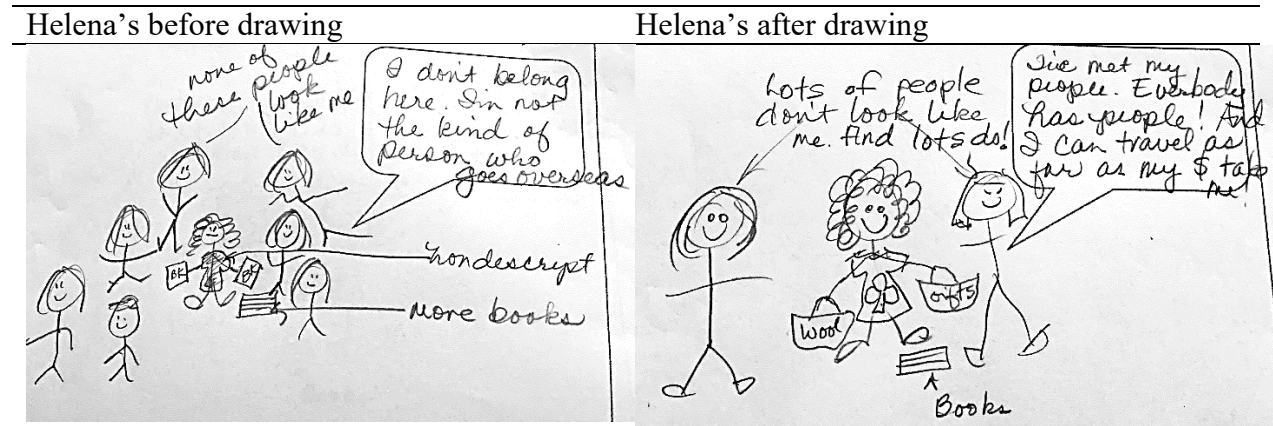 Helena's before drawing
none of
these people
look
like me
I don't belong
here. I'm not
the kind of
person who
goes overseas
BK
BK
nondescript
more books
Helena's after drawing
Lots of people
don't look like
me. And lots do!
I've met my
people. Everbody
has people! And
I can travel as
far as my $ take
me!
wool
gifts
Books